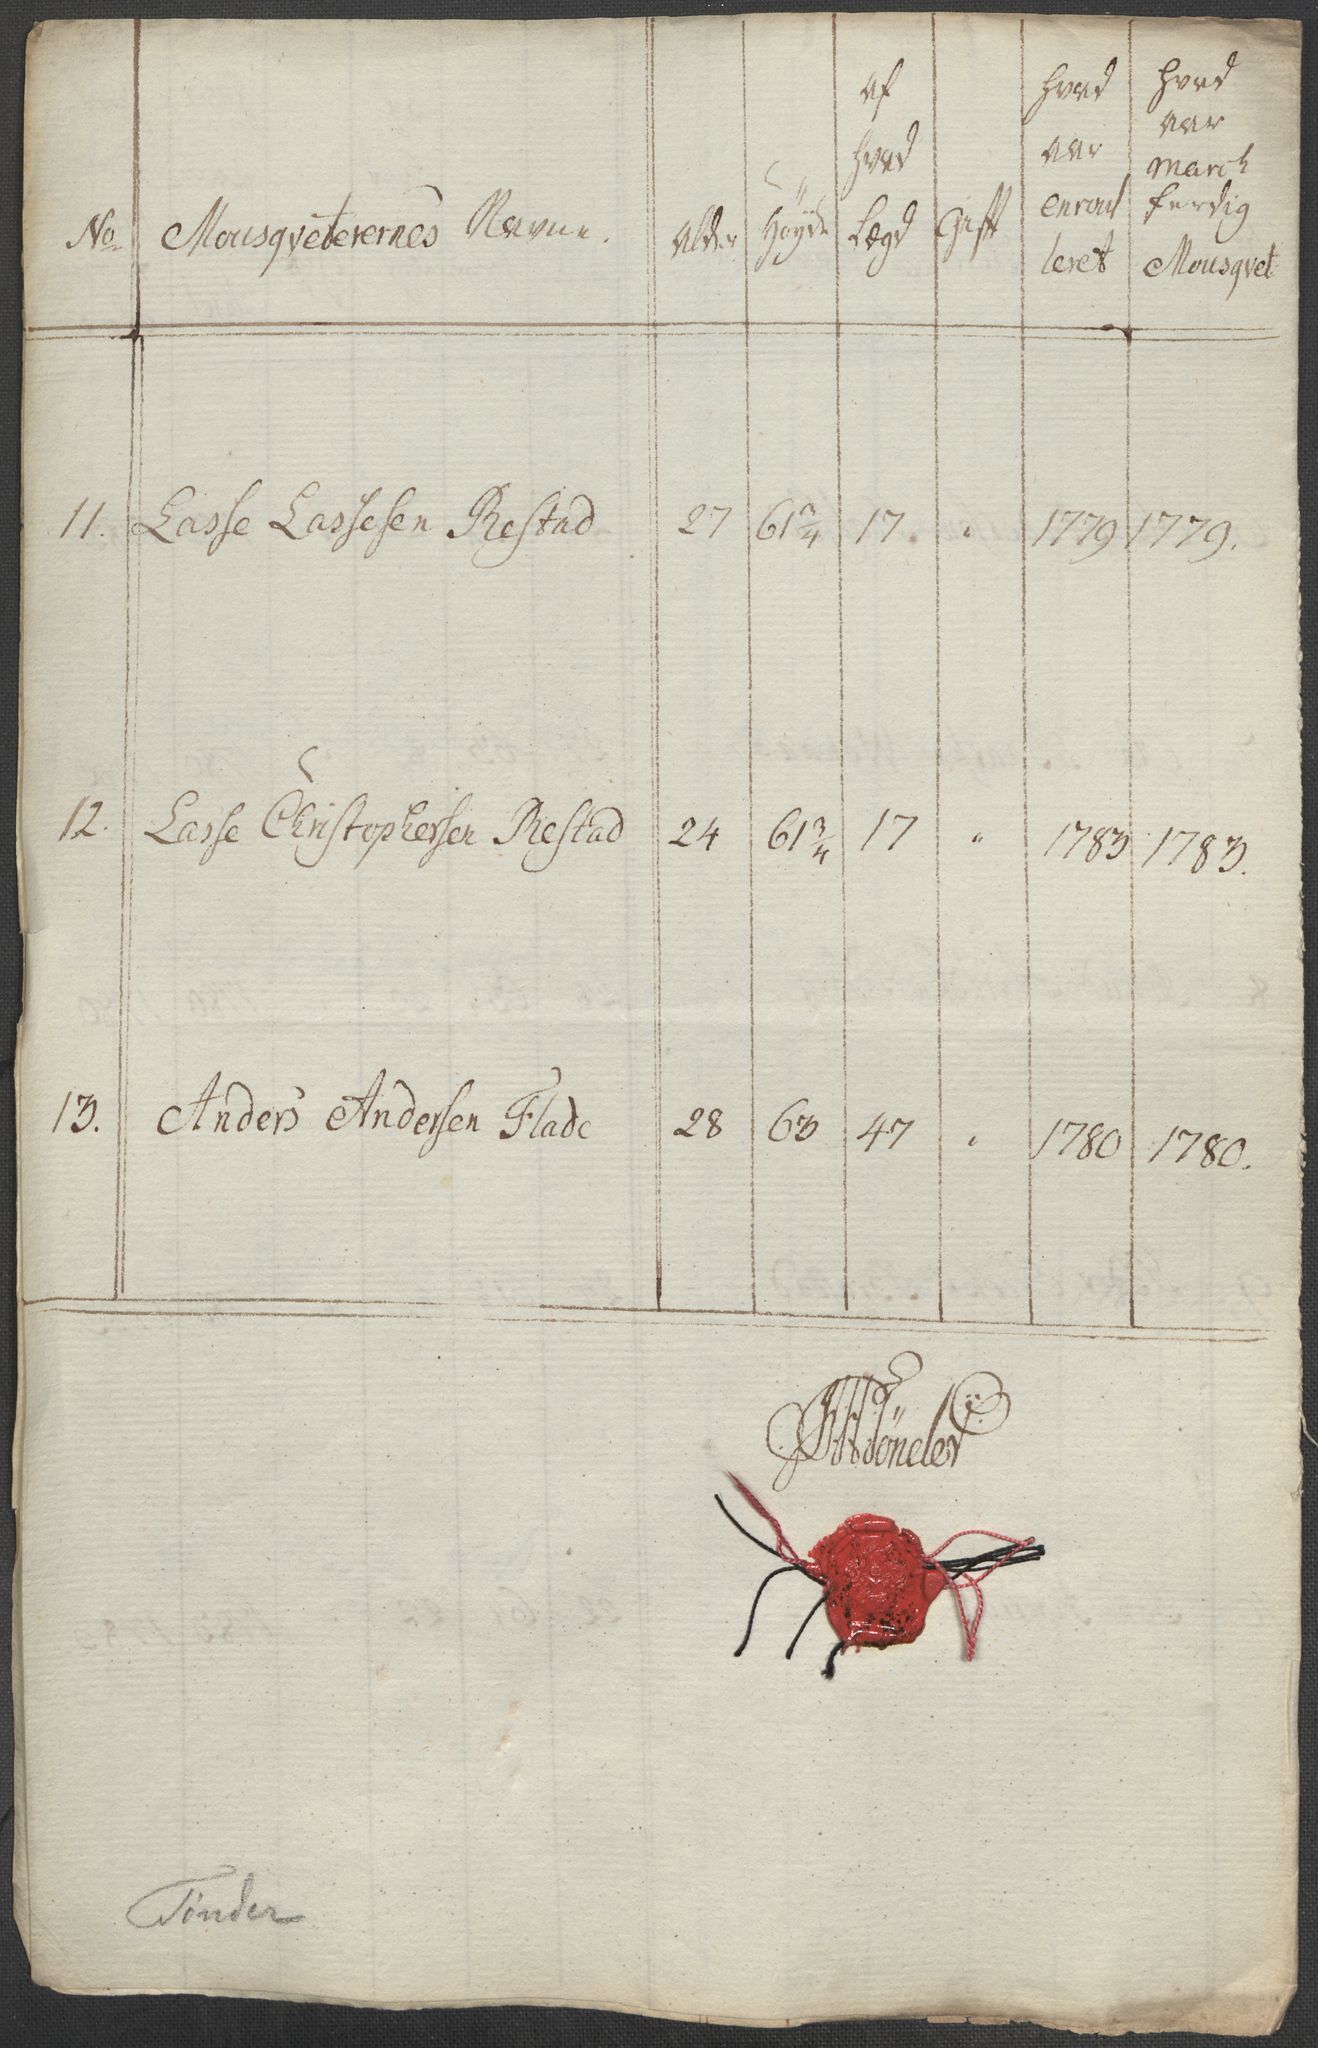 No Mousqveterernes Navne. Alder Höyde af hvad Lægd Gift hvad aar enroulleret hvad aar march ferdig Mousqvet
11. Lasse Lassesen Restad 27 61 3/4 17 " 1779 1779.
12. Lasse Christophersen Restad 24 61 3/4 17 " 1783 1783.
13. Anders Andersen Flade 28 63 47 " 1780 1780.
Tönder